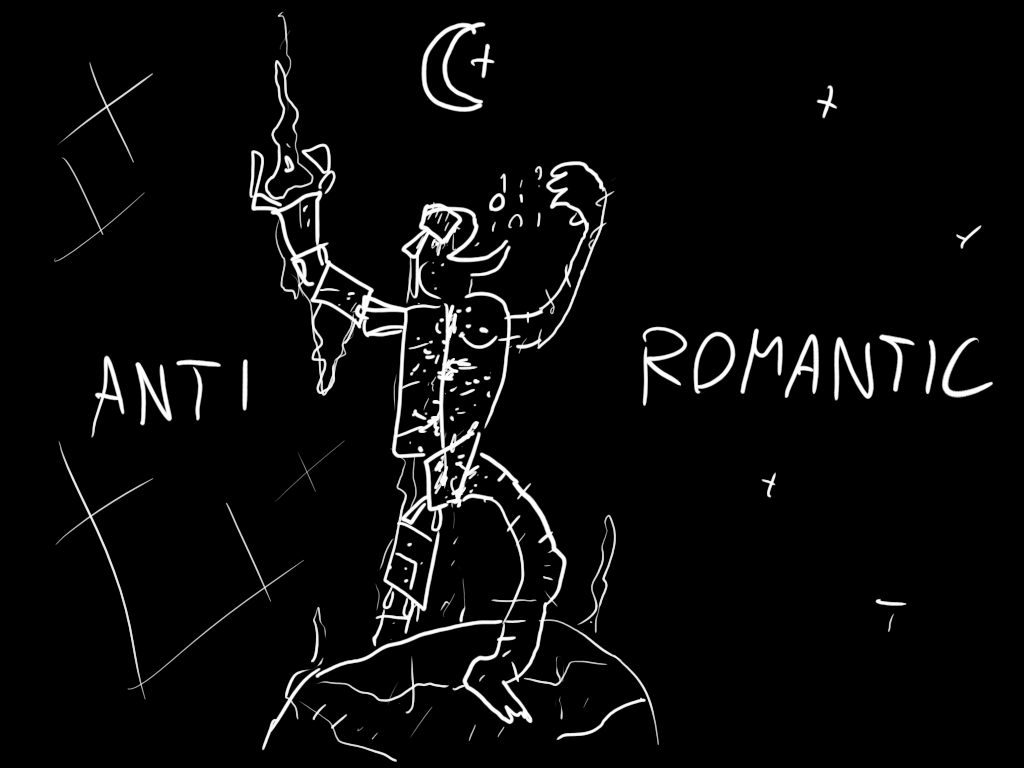 ANTI
ROMANTIC